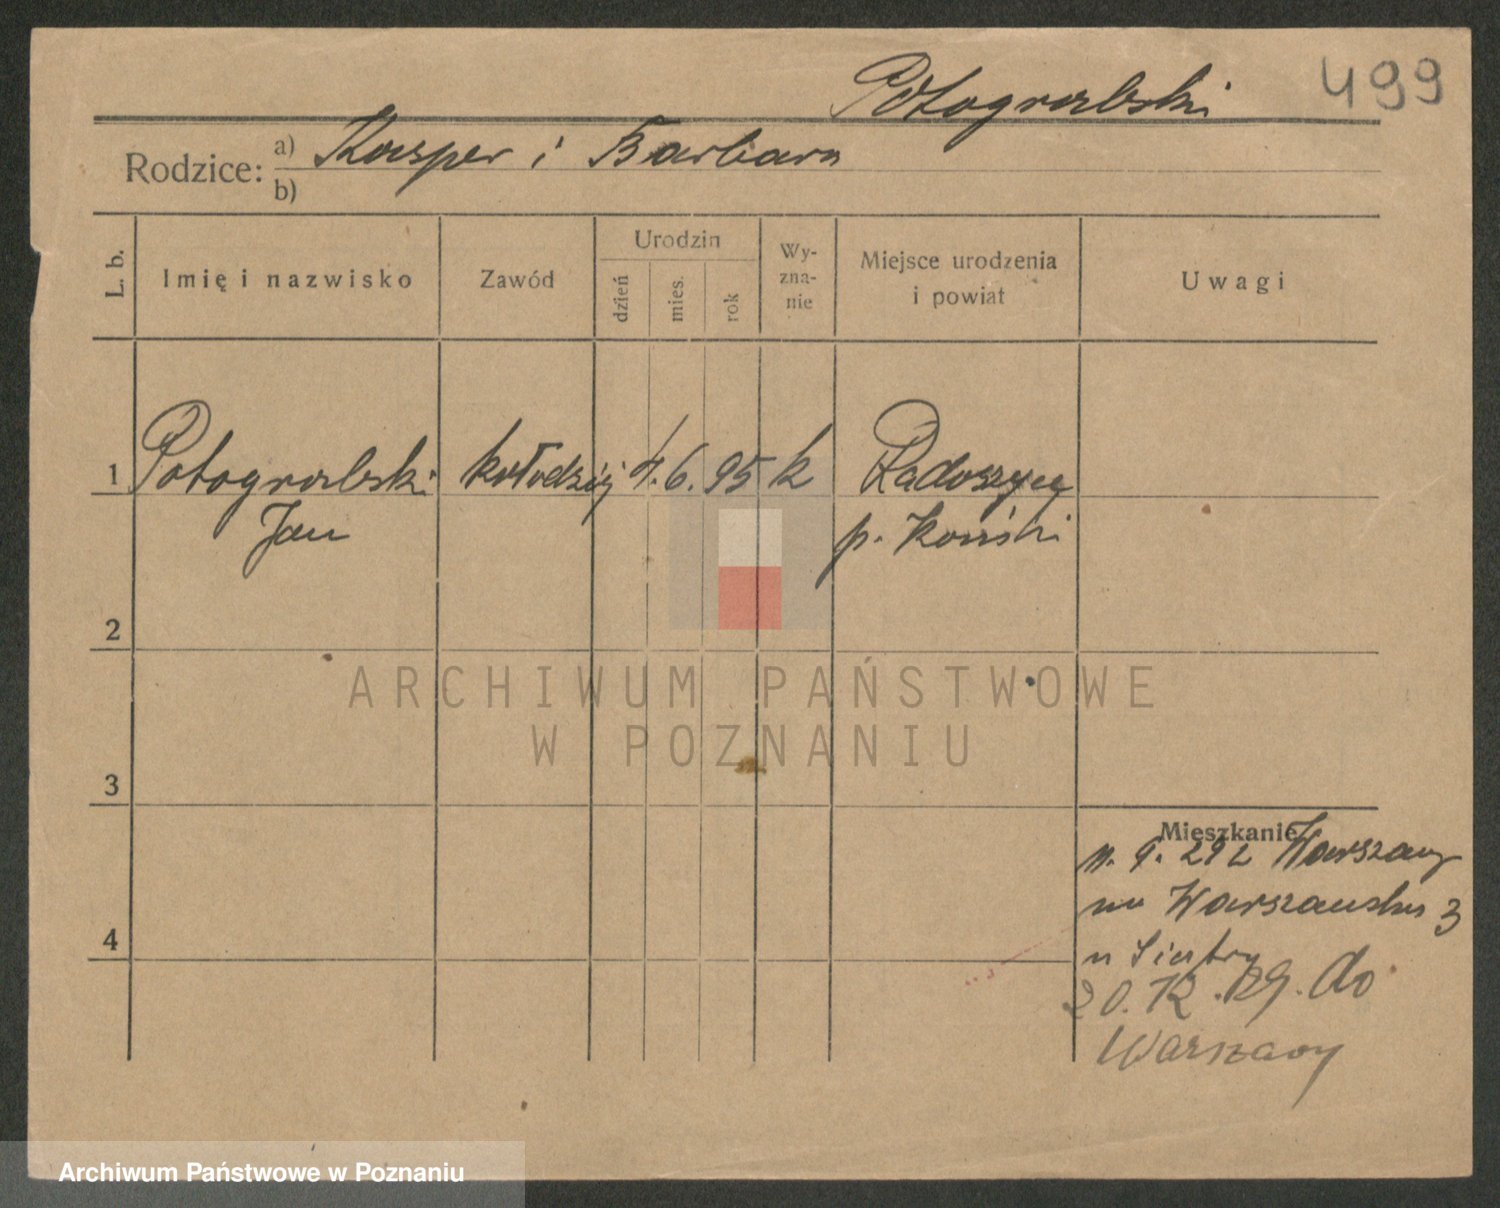 Potograbski 499
Rodzice: a) Kasper i Barbara
b)
L. b. Imię i nazwisko Zawód Urodzin dzień mies. rok Wy-zna-nie Miejsce urodzenia i powiat Uwagi
1 Potograbski kołodziej 4. 6. 95 k Radoszyce
Jan p. Koński
2
3
4
Mieszkanie
11. 9. 29 z Warszawy
na Warszawska 3
u Siostry
20. 12. 29. do
Warszawy
ARCHIWUM PAŃSTWOWE
W POZNANIU
Archiwum Państwowe w Poznaniu